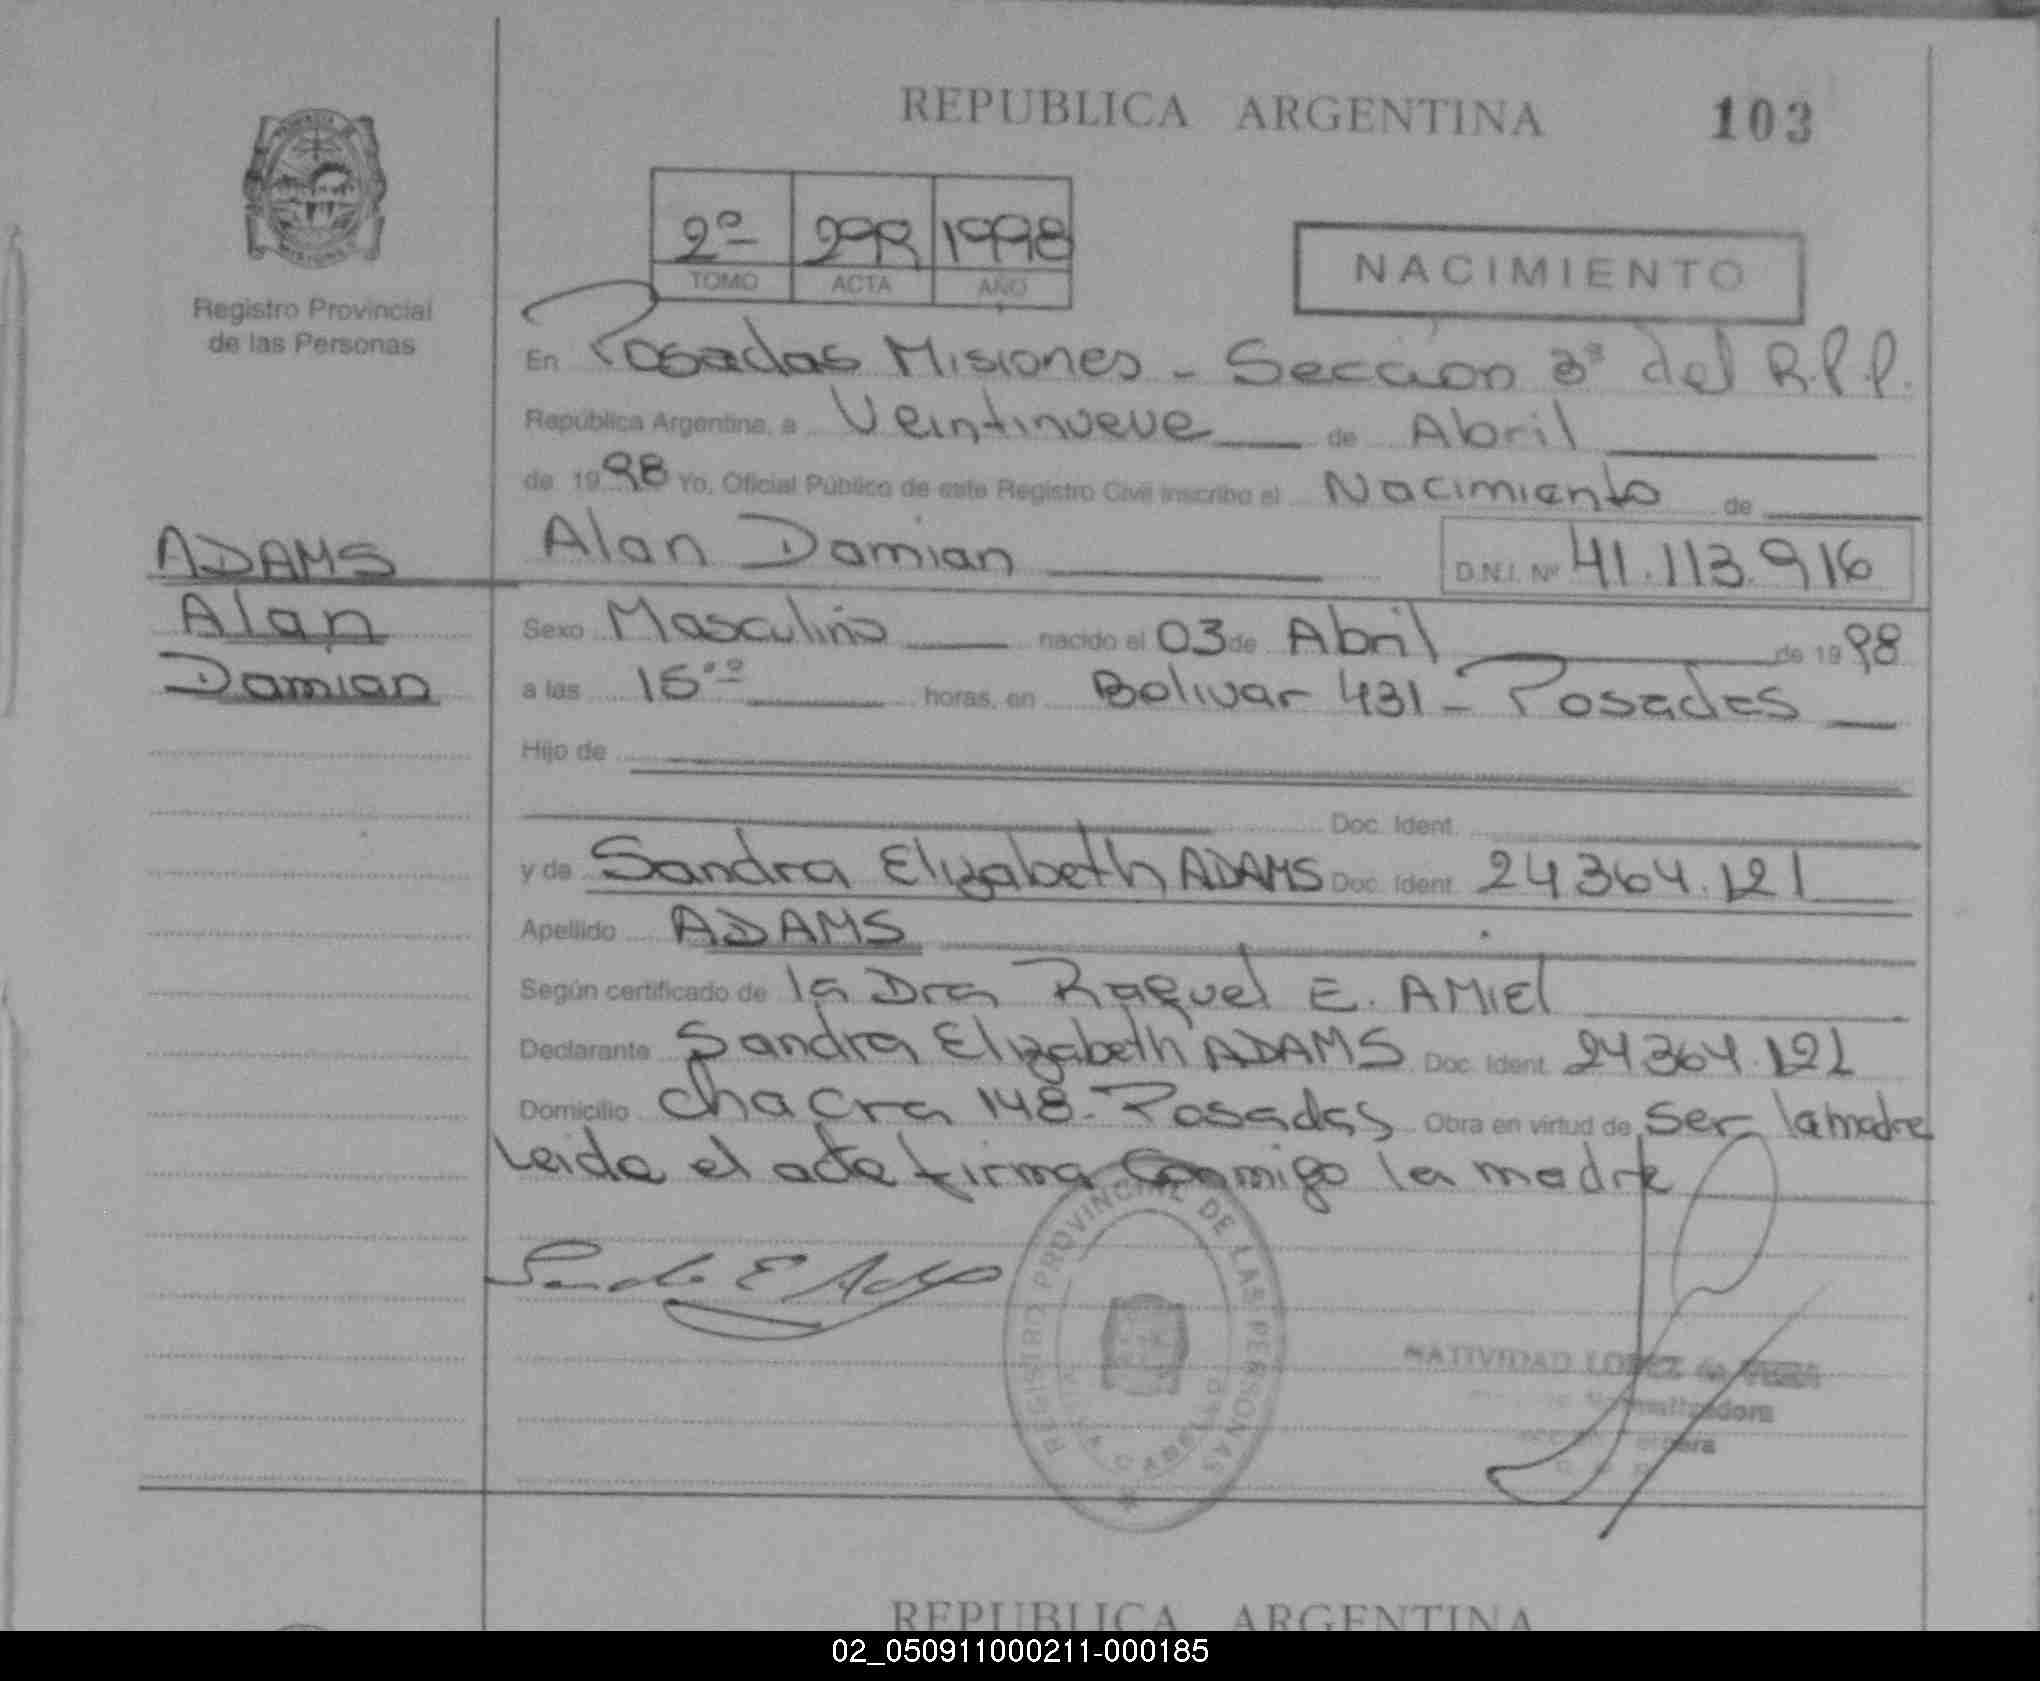 REPUBLICA ARGENTINA 103
2º 299 1998
TOMO ACTA AÑO
NACIMIENTO
Registro Provincial
de las Personas
En Posadas Misiones - Seccion 3ª del R.P.P.
República Argentina, a Veintinueve de Abril
de 1998 Yo, Oficial Público de este Registro Civil inscribo el Nacimiento de
ADAMS
Alan
Damian
Alan Damian D.N.I. Nº 41.113.916
Sexo Masculino nacido el 03 de Abril de 1998
a las 15ºº horas, en Bolivar 431 - Posadas
Hijo de
Doc. Ident.
y de Sandra Elizabeth ADAMS Doc. Ident. 24364.121
Apellido ADAMS
Según certificado de la Dra Raquel E. AMIEL
Declarante Sandra Elizabeth ADAMS Doc. Ident. 24364.121
Domicilio Chacra 148 - Posadas Obra en virtud de ser la madre
Leida el acta firma conmigo la madre
REGISTRO PROVINCIAL DE LAS PERSONAS
NATIVIDAD LOPEZ de
REPUBLICA ARGENTINA
02_050911000211-000185